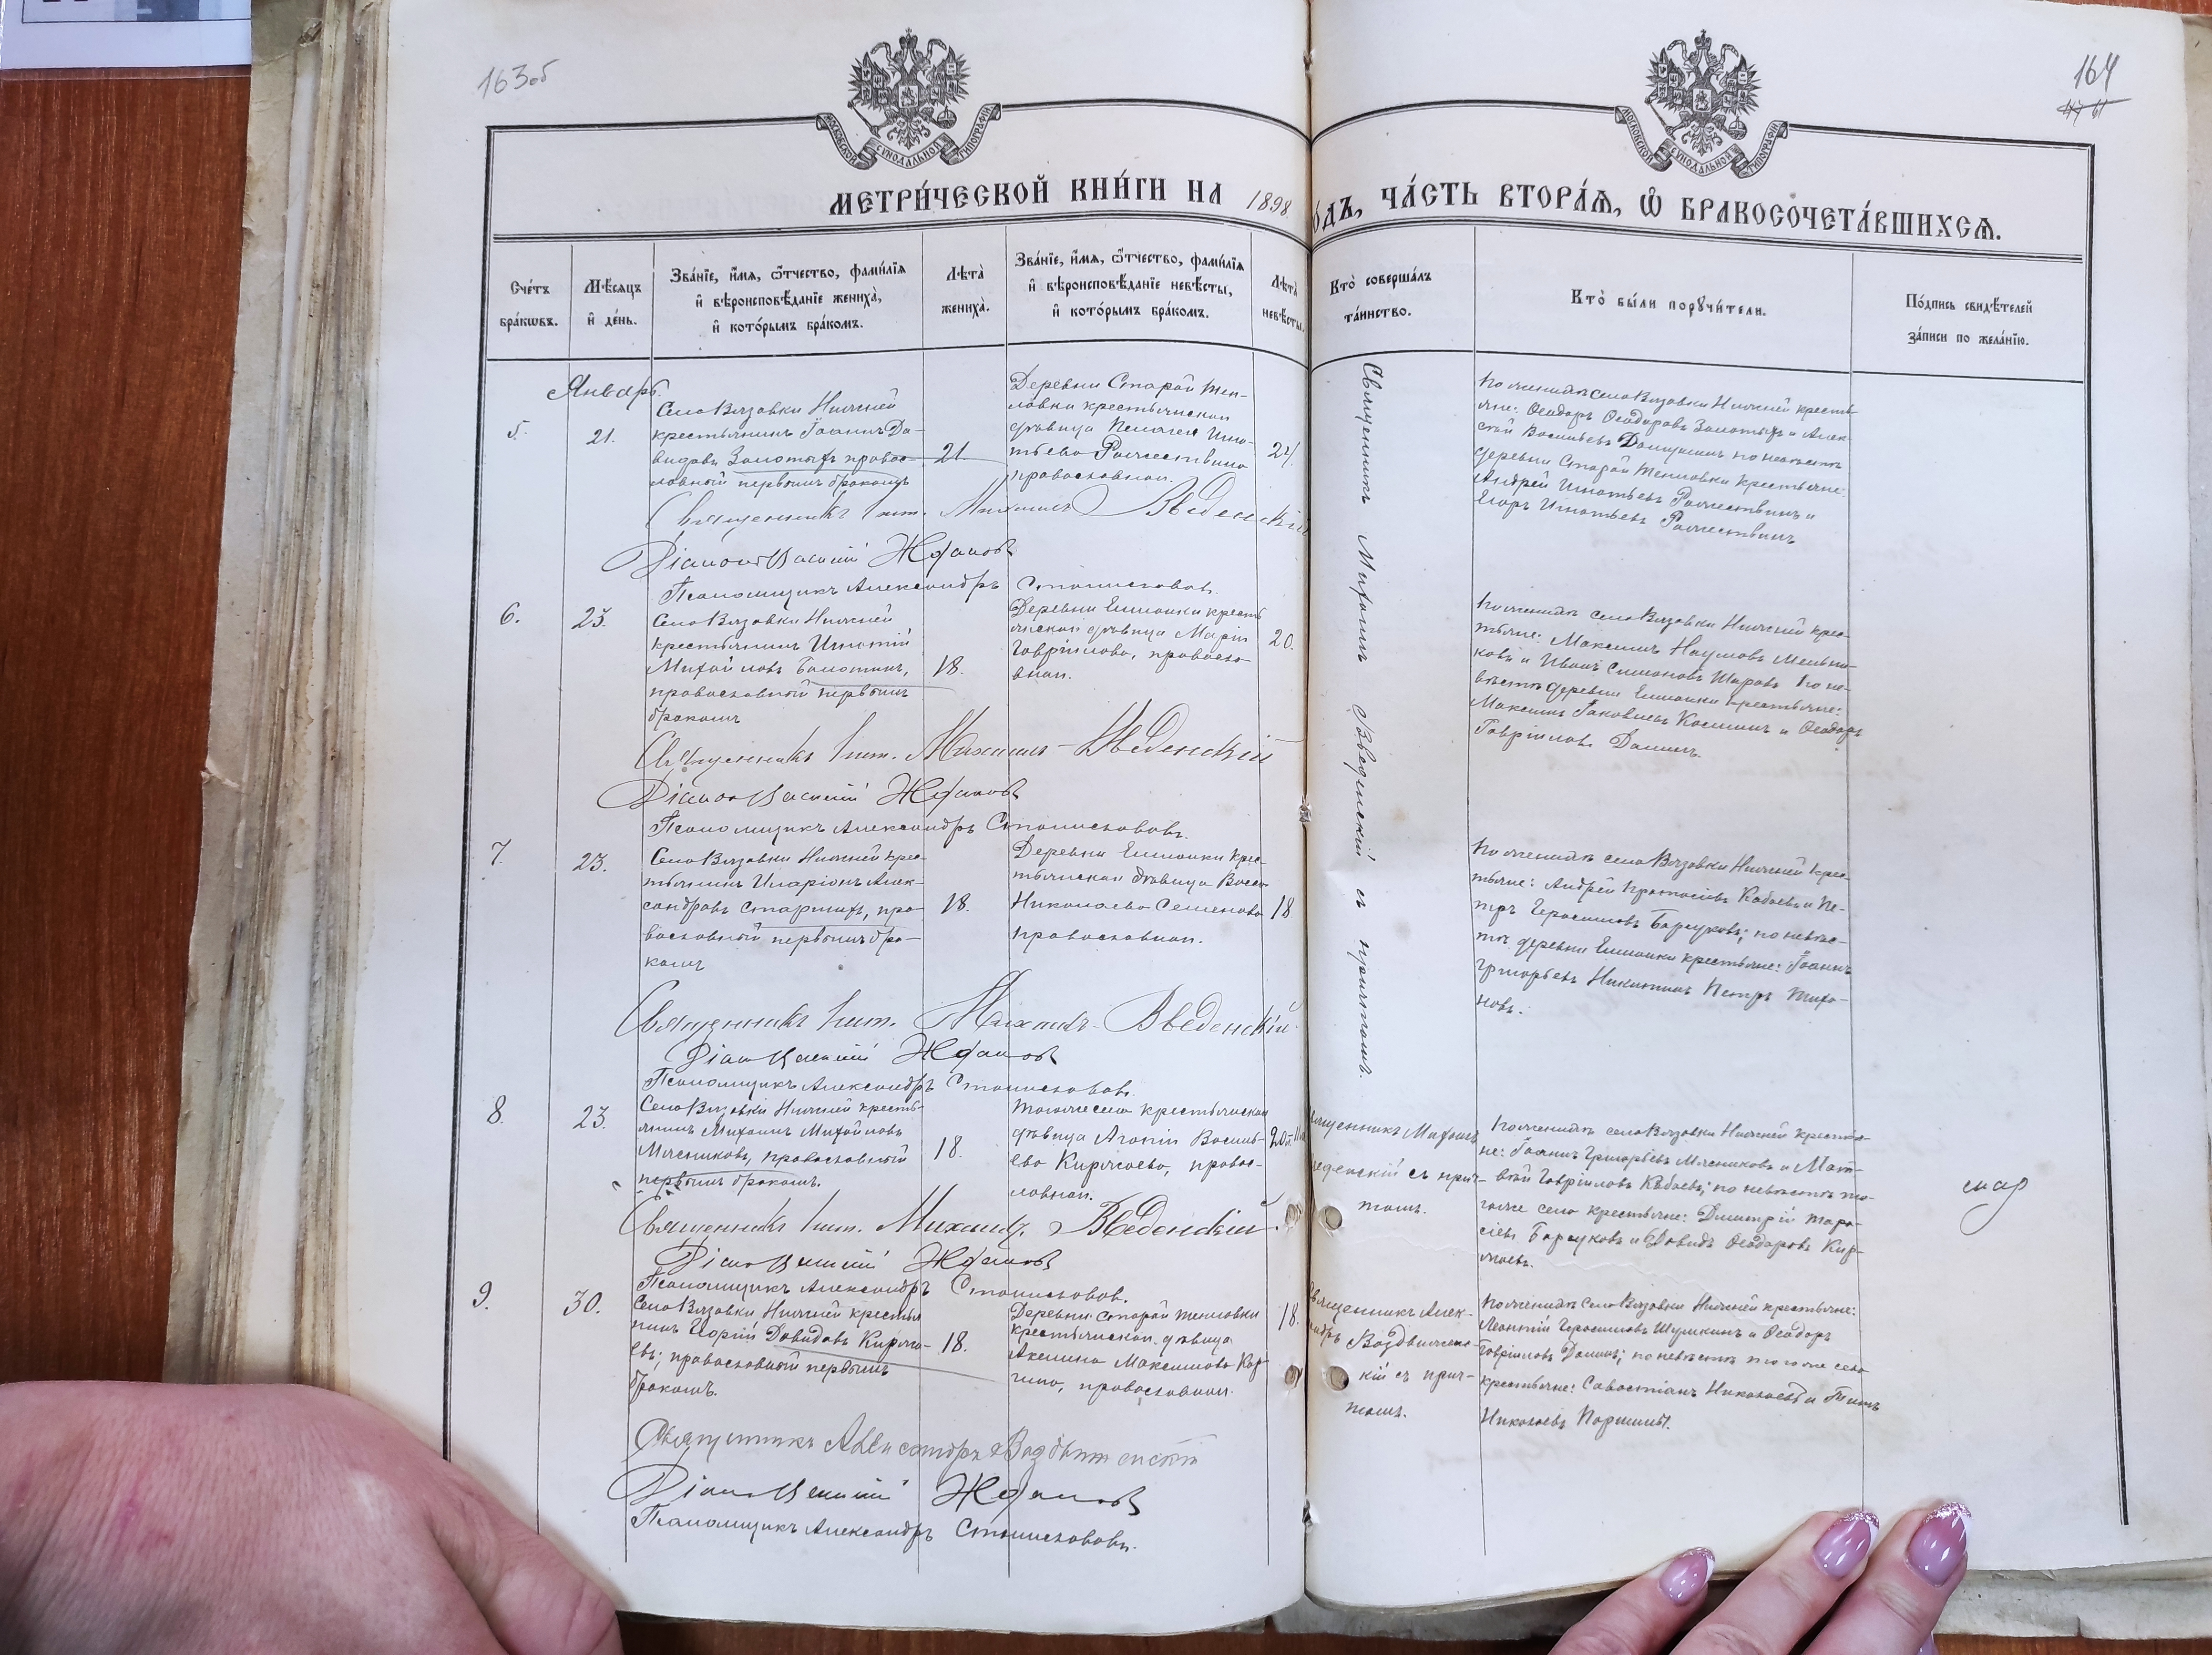 163об
164
МОСКОВСКОЙ СѴНОДАЛЬНОЙ ТИПОГРАФІИ
МОСКОВСКОЙ СѴНОДАЛЬНОЙ ТИПОГРАФІИ
МЕТРИ́ЧЕСКОЙ КНИ́ГИ НА 1898
ОДЪ, ЧА́СТЬ ВТОРА́Ѧ, Ѡ҆ БРАКОСОЧЕТА́ВШИХСѦ.
Сче́тъ
бра́кѡвъ.
Мѣ́сяцъ
и҆ де́нь.
Зва́нїе, и҆́мѧ, ѻ҆́тчество, фами́лїѧ
и҆ вѣроисповѣ́данїе жениха̀,
и҆ кото́рымъ бра́комъ.
Лѣта̀
жениха̀.
Зва́нїе, и҆́мѧ, ѻ҆́тчество, фами́лїѧ
и҆ вѣроисповѣ́данїе невѣ́сты,
и҆ кото́рымъ бра́комъ.
Лѣта̀
невѣ́сты.
Кто̀ соверша́лъ
та́инство.
Кто̀ бы́ли порꙋчи́тели.
По́дпись свидѣ́телей
за́писи по жела́нїю.
Январь.
5.
21.
Села Вязовки Нижней
крестьянинъ Іоаннъ Да-
видовъ Золотыхъ право-
славный первымъ бракомъ
21.
Деревни Старой Теп-
ловки крестьянская
дѣвица Пелагея Игна-
тьева Рожчествина
православная.
Священникъ Михаилъ Введенскій съ причтомъ.
По женихѣ села Вязовки Нижней кресть-
яне: Ѳеодоръ Ѳеодоровъ Золотыхъ и Алек-
сѣй Васильевъ по невѣстѣ
деревни Старой Тепловки крестьяне:
Андрей Игнатьевъ Рожчествинъ и
Егоръ Игнатьевъ Рожчествинъ
Священникъ Михаилъ Введенскій
Діаконъ Василій Ждановъ
Псаломщикъ Александръ Станиславовъ.
6.
23.
Села Вязовки Нижней
крестьянинъ Игнатій
Михайловъ Болотинъ,
православный первымъ
бракомъ
18.
Деревни Елшанки кресть
янская дѣвица Марія
Гаврiилова, правосла
вная.
20.
По женихѣ села Вязовки Нижней крес-
тьяне: Максимъ Наумовъ Мельни-
ковъ и Иванъ Симоновъ Шаровъ по не-
вѣстѣ деревни Елшанки крестьяне:
Максимъ Іаковлевъ Косминъ и Ѳеодоръ
Гавріиловъ Доминъ.
Священникъ Михаилъ Введенскій
Діаконъ Василій Ждановъ
Псаломщикъ Александръ Станиславовъ.
7.
23.
Села Вязовки Нижней крес-
тьянинъ Иларіонъ Алек-
сандровъ Старшихъ, пра-
вославный первымъ бра-
комъ
18.
Деревни Елшанки крес-
тьянская дѣвица Васса
Николаева Семенова
православная.
18.
По женихѣ села Вязовки Нижней крес-
тьяне: Андрей Протасіевъ Кабаевъ и Пе-
тръ Герасимовъ Барсуковъ; по невѣс-
тѣ деревни Елшанки крестьяне: Іоаннъ
Григорьевъ Никитинъ Петръ Тихо-
новъ.
Священникъ Михаилъ Введенскій
Діаконъ Василій Ждановъ
Псаломщикъ Александръ Станиславовъ.
8.
23.
Села Вязовки Нижней кресть-
янинъ Михаилъ Михайловъ
Мясниковъ, православный
первымъ бракомъ.
18.
Тогоже села крестьянская
дѣвица Агапія Василь-
ева Киржаева, правос-
лавная.
Священникъ Михаилъ
Введенскій съ прич-
томъ.
По женихѣ села Вязовки Нижней крестья-
не: Іоаннъ Григорьевъ Мясниковъ и Мат-
вѣй Гавріиловъ Кабаевъ; по невѣстѣ то-
гоже села крестьяне: Димитрій Тара-
сіевъ Барсуковъ и Давидъ Ѳеодоровъ Кир-
жаевъ.
Священникъ Михаилъ Введенскій.
Діаконъ Василій Ждановъ
Псаломщикъ Александръ Станиславовъ.
9.
30.
Села Вязовки Нижней крестья
нинъ Давидовъ Киржа-
евъ; православный первымъ
бракомъ.
18.
Деревни Старой Тепловки
крестьянская дѣвица
Акелина Максимова Кор-
гина, православная.
18.
Священникъ Алек-
сандръ Воздвижен-
скій съ прич-
томъ.
По женихѣ села Вязовки Нижней крестьяне:
Леонтій Герасимовъ Шушкинъ и Ѳеодоръ
Гавріиловъ Доминъ; по невѣстѣ тогоже села
крестьяне: Савостіанъ Николаевъ и Титъ
Николаевъ Паршинъ.
Священникъ Александръ Воздвиженскій
Діаконъ Василій Ждановъ
Псаломщикъ Александръ Станиславовъ.